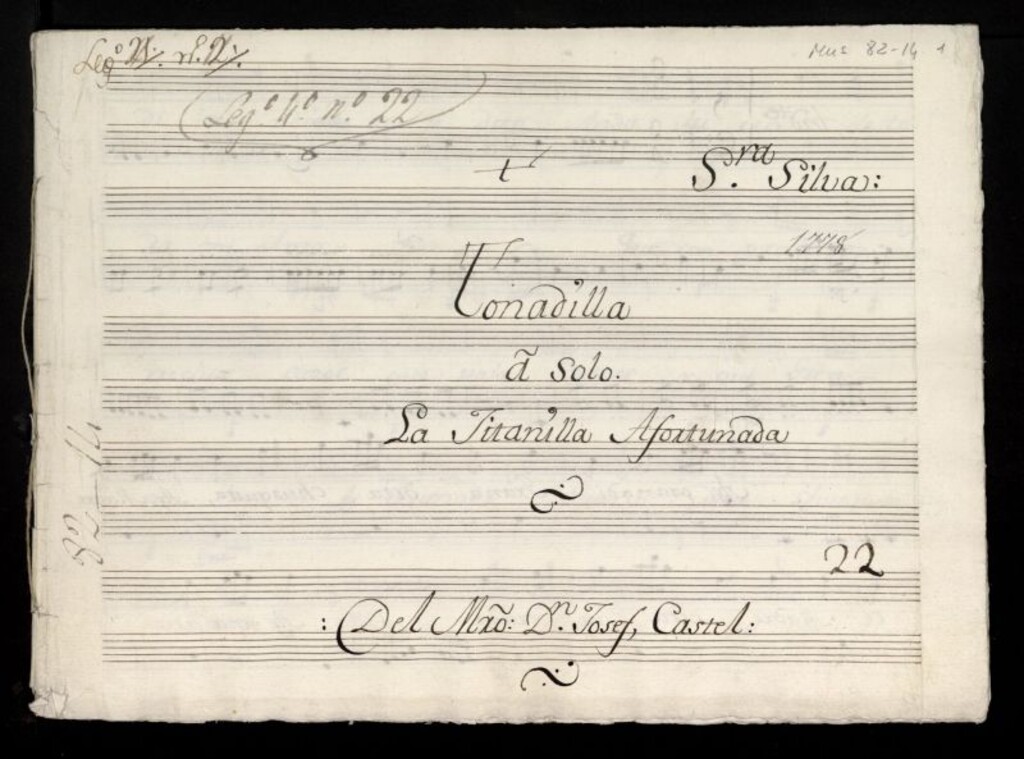 Leg.º 21. nº. 21.
Mus 82-14 1
Leg.º 4.º n.º 22
S.ra Silva:
1778
Tonadilla
â solo.
La Jitanilla Afortunada
82-14
22
: Del Mrõ: D.n Josef, Castel: